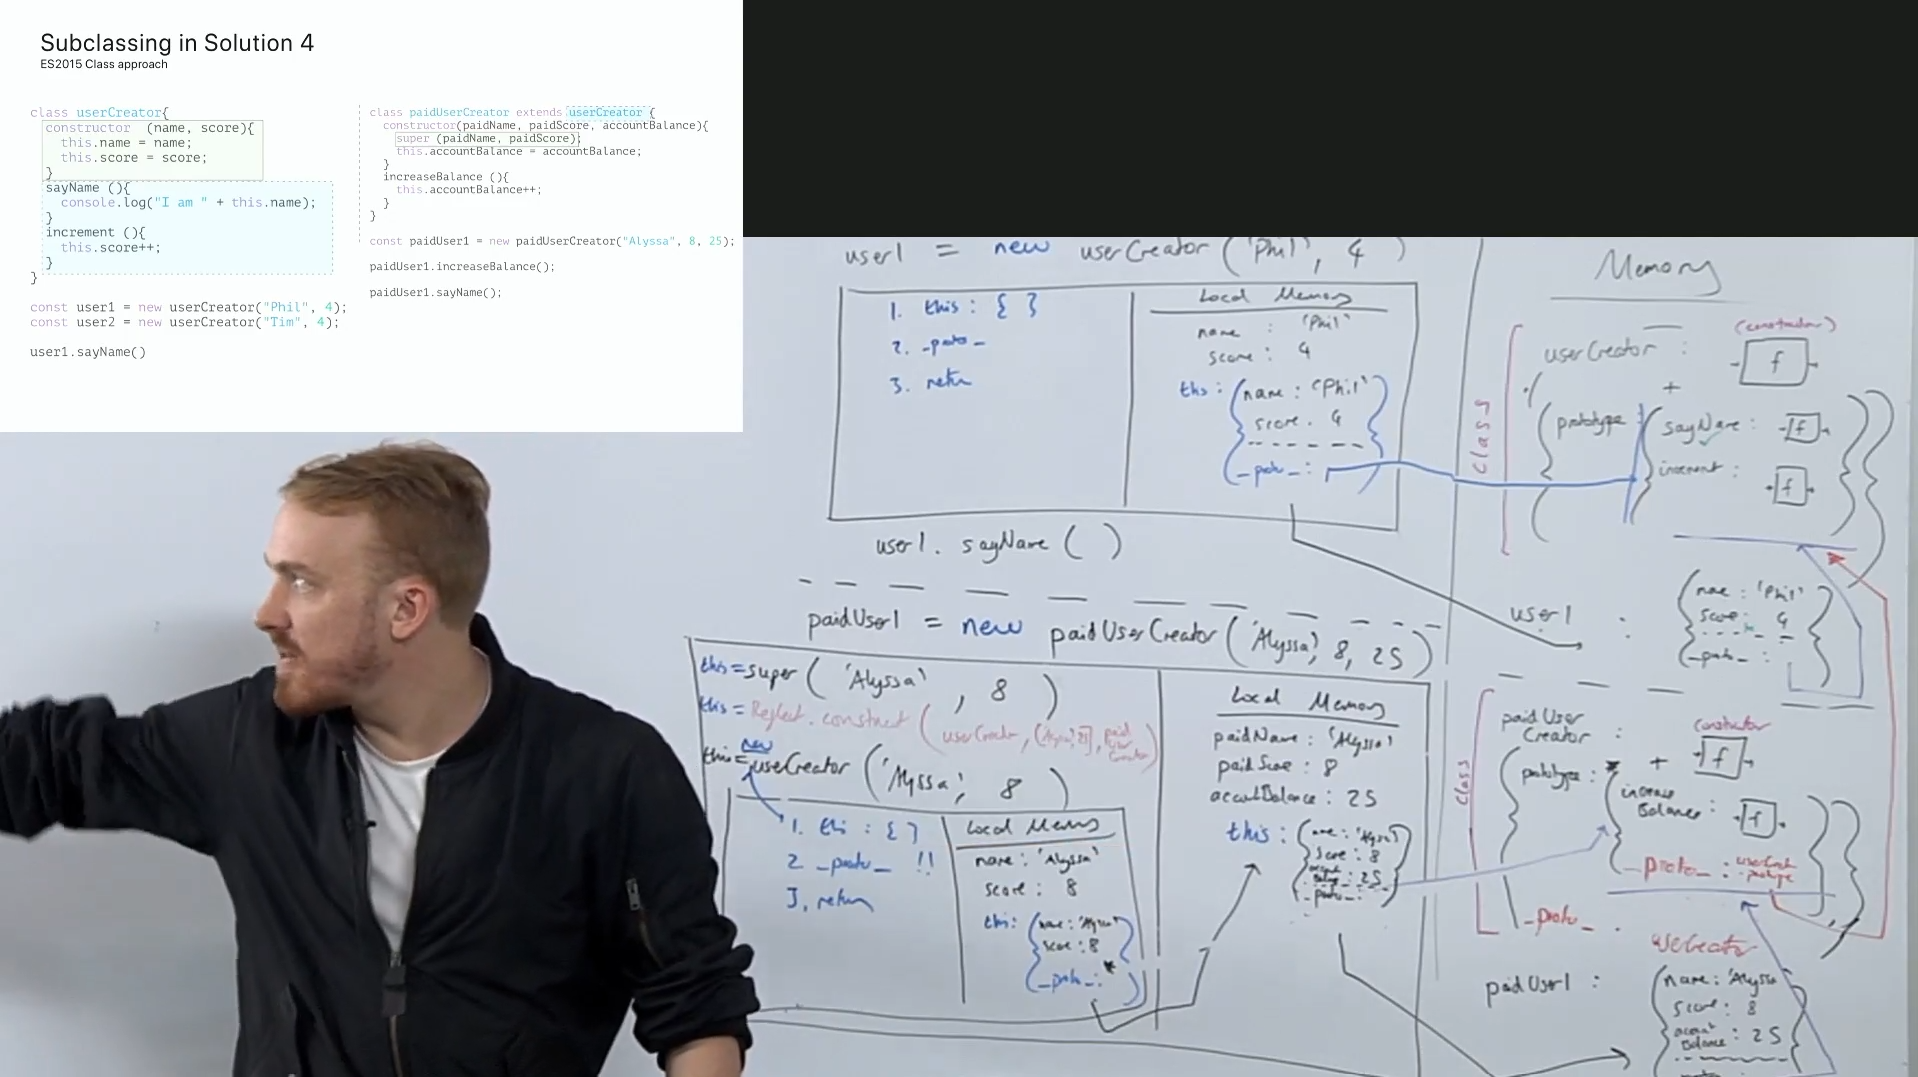 Subclassing in Solution 4
ES2015 Class approach
class userCreator{
constructor (name, score){
this.name = name;
this.score = score;
}
sayName (){
console.log("I am " + this.name);
}
increment (){
this.score++;
}
}
const user1 = new userCreator("Phil", 4);
const user2 = new userCreator("Tim", 4);
user1.sayName()
class paidUserCreator extends userCreator {
constructor(paidName, paidScore, accountBalance){
super (paidName, paidScore);
this.accountBalance = accountBalance;
}
increaseBalance (){
this.accountBalance++;
}
}
const paidUser1 = new paidUserCreator("Alyssa", 8, 25);
paidUser1.increaseBalance();
paidUser1.sayName();
user1 = new userCreator ('Phil', 4)
1. this : { }
2. _proto_
3. return
Local Memory
name : 'Phil'
score : 4
this : { name : 'Phil'
score . 4
_proto_ :
user1. sayName ( )
paidUser1 = new paidUserCreator ('Alyssa', 8, 25)
this = super ( 'Alyssa' , 8 )
this = Reflect.construct ( userCreator,
this = new userCreator ('Alyssa', 8 )
1. this : { }
2 _proto_ !!
3. return
Local Memory
name : 'Alyssa'
score : 8
this: { name : 'Alyssa'
score : 8
_proto_ : *
Local Memory
paidName : 'Alyssa'
paidScore : 8
accountBalance : 25
this : { name : 'Alyssa'
score : 8
: 25
_proto_ :
Memory
class
(constructor)
userCreator : f
+
{ prototype { sayName : f
increment : f
user1 : { name : 'Phil'
score : 4
_proto_ :
class
paidUser
Creator :
constructor
f
+
prototype : * { increase
Balance : f
_proto_ :
_proto_ .
userCreator
paidUser1 : { name : 'Alyssa
score : 8
account
Balance : 25